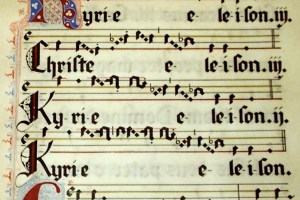 Kyrie e le-i-son.iij.
Christe e le-i-son.iij.
Kyri-e e le-i-son.iij.
Kyrie e le-i-son.